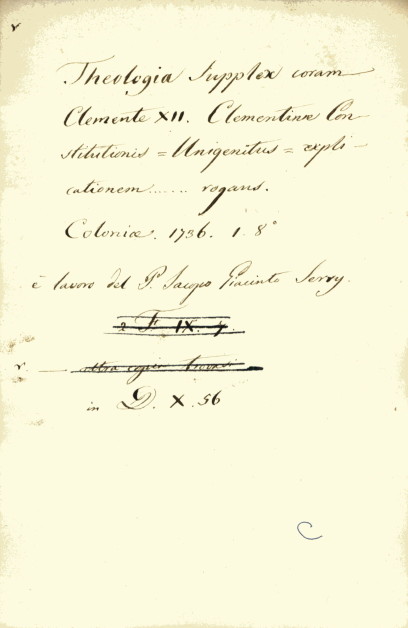 Theologia Supplex coram
Clemente XII. Clementinæ Con-
stitutionis = Unigenitus = expli-
cationem ...... rogans.
Coloniæ. 1736. 1. 8°
è lavoro del P. Jacopo Giacinto Serry.
2 F. IX. 7
altra copia trovasi
in D. X. 56
C